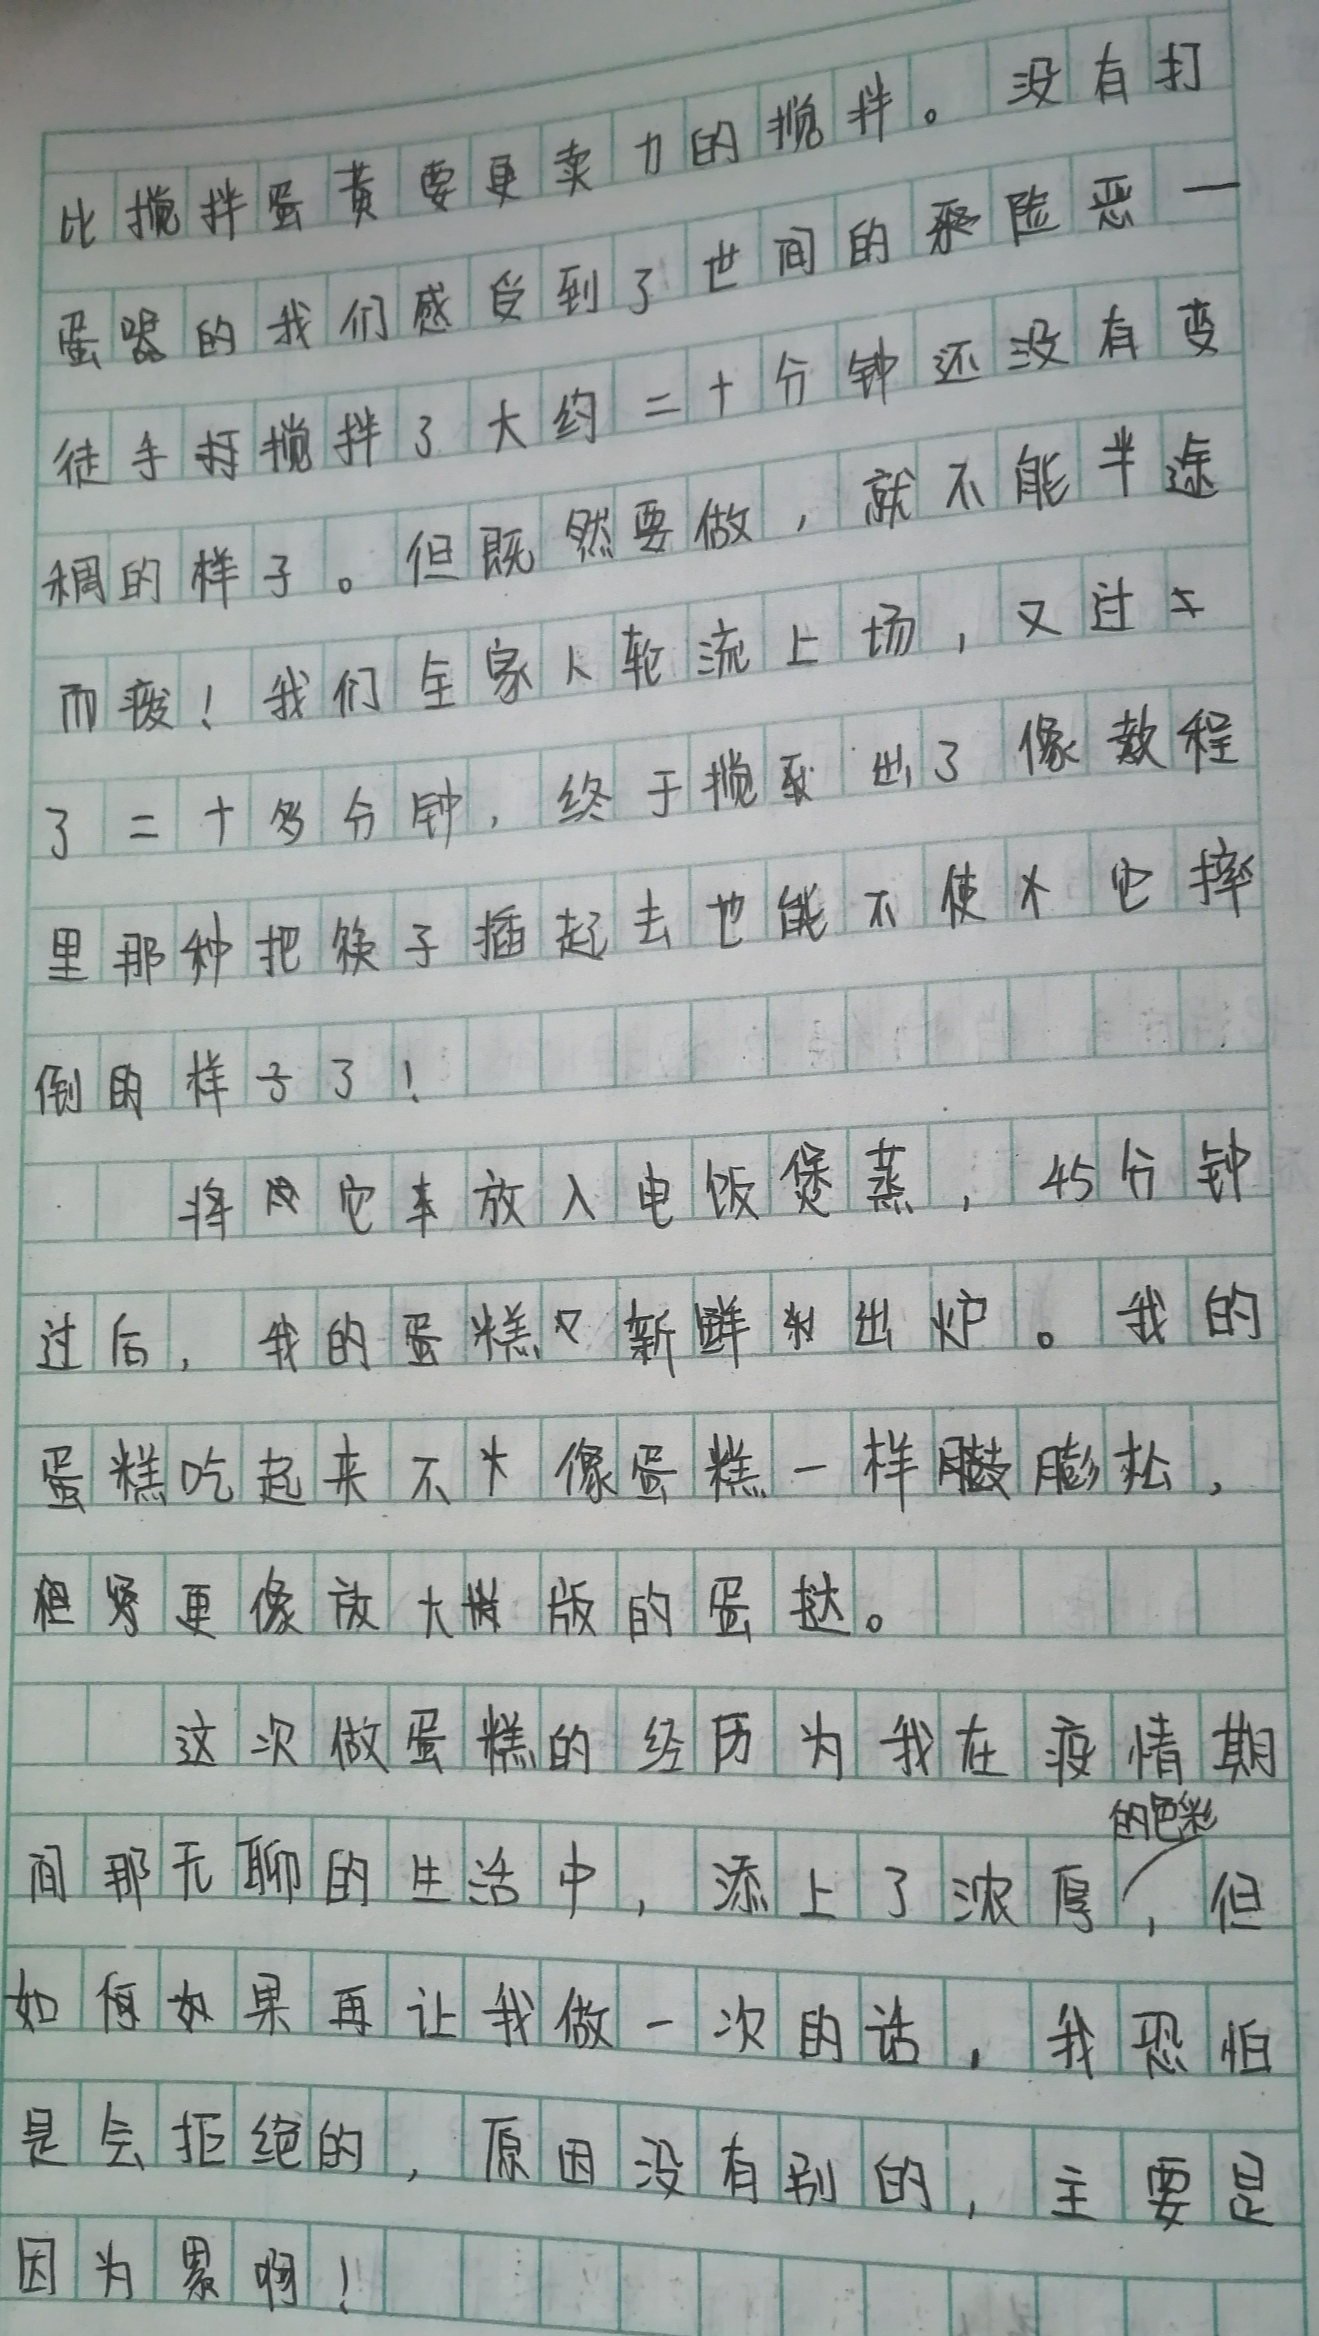 比搅拌蛋黄要更卖力的搅拌。没有打
蛋器的我们感受到了世间的险恶一
徒手搅拌了大约二十分钟还没有变
稠的样子。但既然要做，就不能半途
而废！我们全家人轮流上场，又过
了二十多分钟，终于搅出了像教程
里那种把筷子插起去也能不使它摔
倒的样子了！
将它放入电饭煲蒸，45分钟
过后，我的蛋糕新鲜出炉。我的
蛋糕吃起来不像蛋糕一样膨松，
但更像放大版的蛋挞。
这次做蛋糕的经历为我在疫情期
间那无聊的生活中，添上了浓厚的色彩，但
如果再让我做一次的话，我恐怕
是会拒绝的，原因没有别的，主要是
因为累啊！